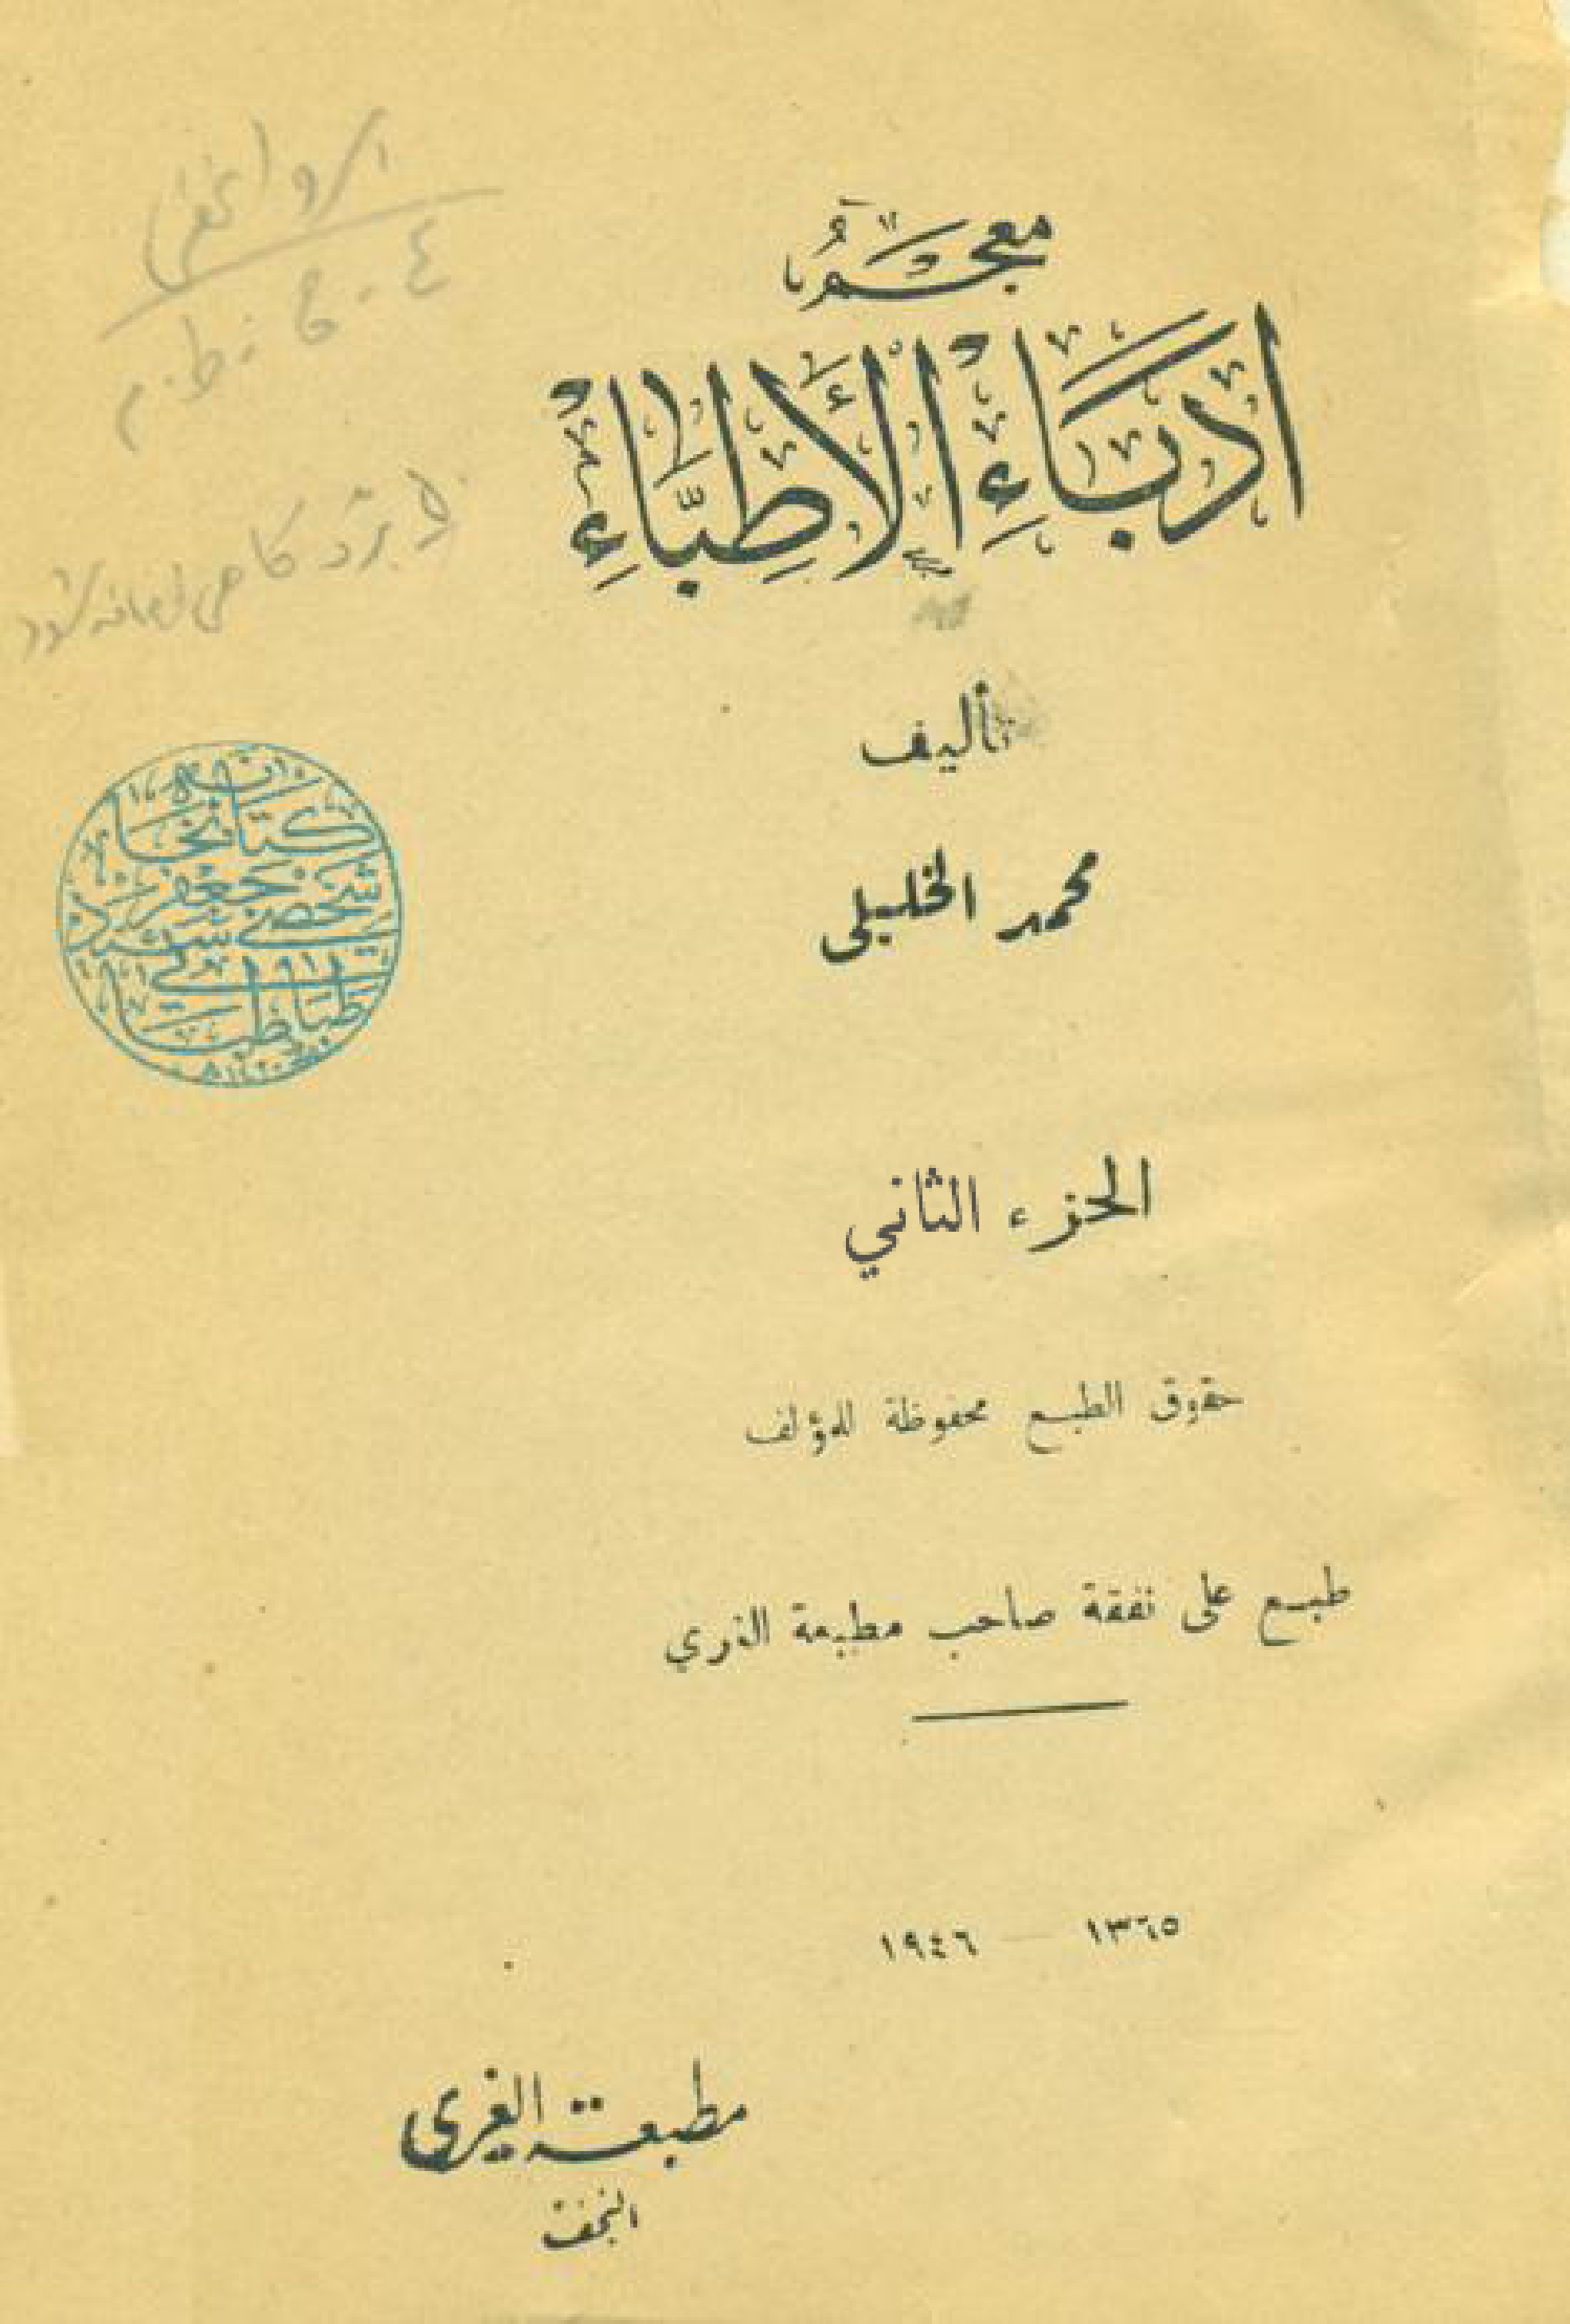 معجم
ادباء الأطباء
تأليف
محمد الخليلي
الجزء الثاني
حقوق الطبع محفوظة للمؤلف
طبع على نفقة صاحب مطبعة الغري
١٣٦٥ — ١٩٤٦
مطبعة الغري
النجف
كتابخانه
شخصی جعفر سید
طباطبا